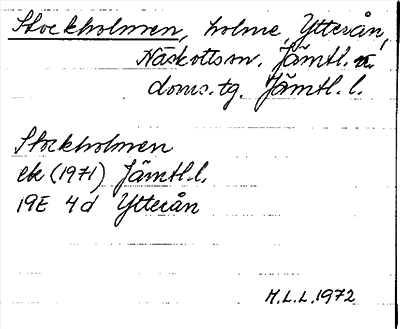 Stockholmen, holme, Ytterån,
Näskotts sn. Jämtl. n.
doms.tg. Jämtl. l.
Stockholmen
ek (1971) Jämtl.l.
19E 4d Ytterån
H.L.L. 1972